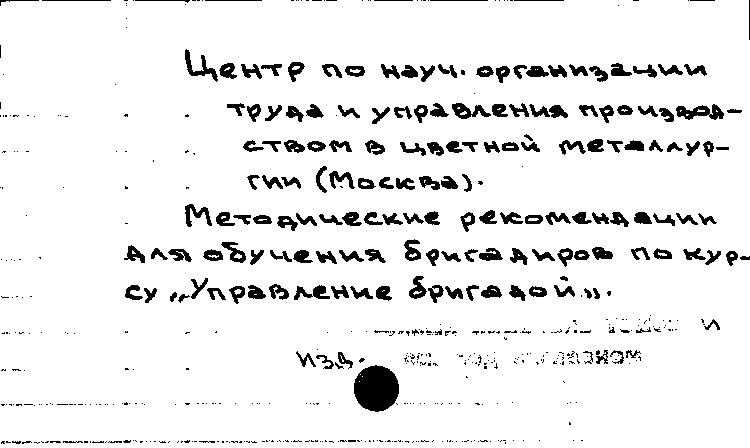 Центр по науч. организации
труда и управления производ-
ством в цветной металлур-
гии (Москва).
Методические рекомендации
для обучения бригадиров по кур-
су „Управление бригадой".
и
изд. под